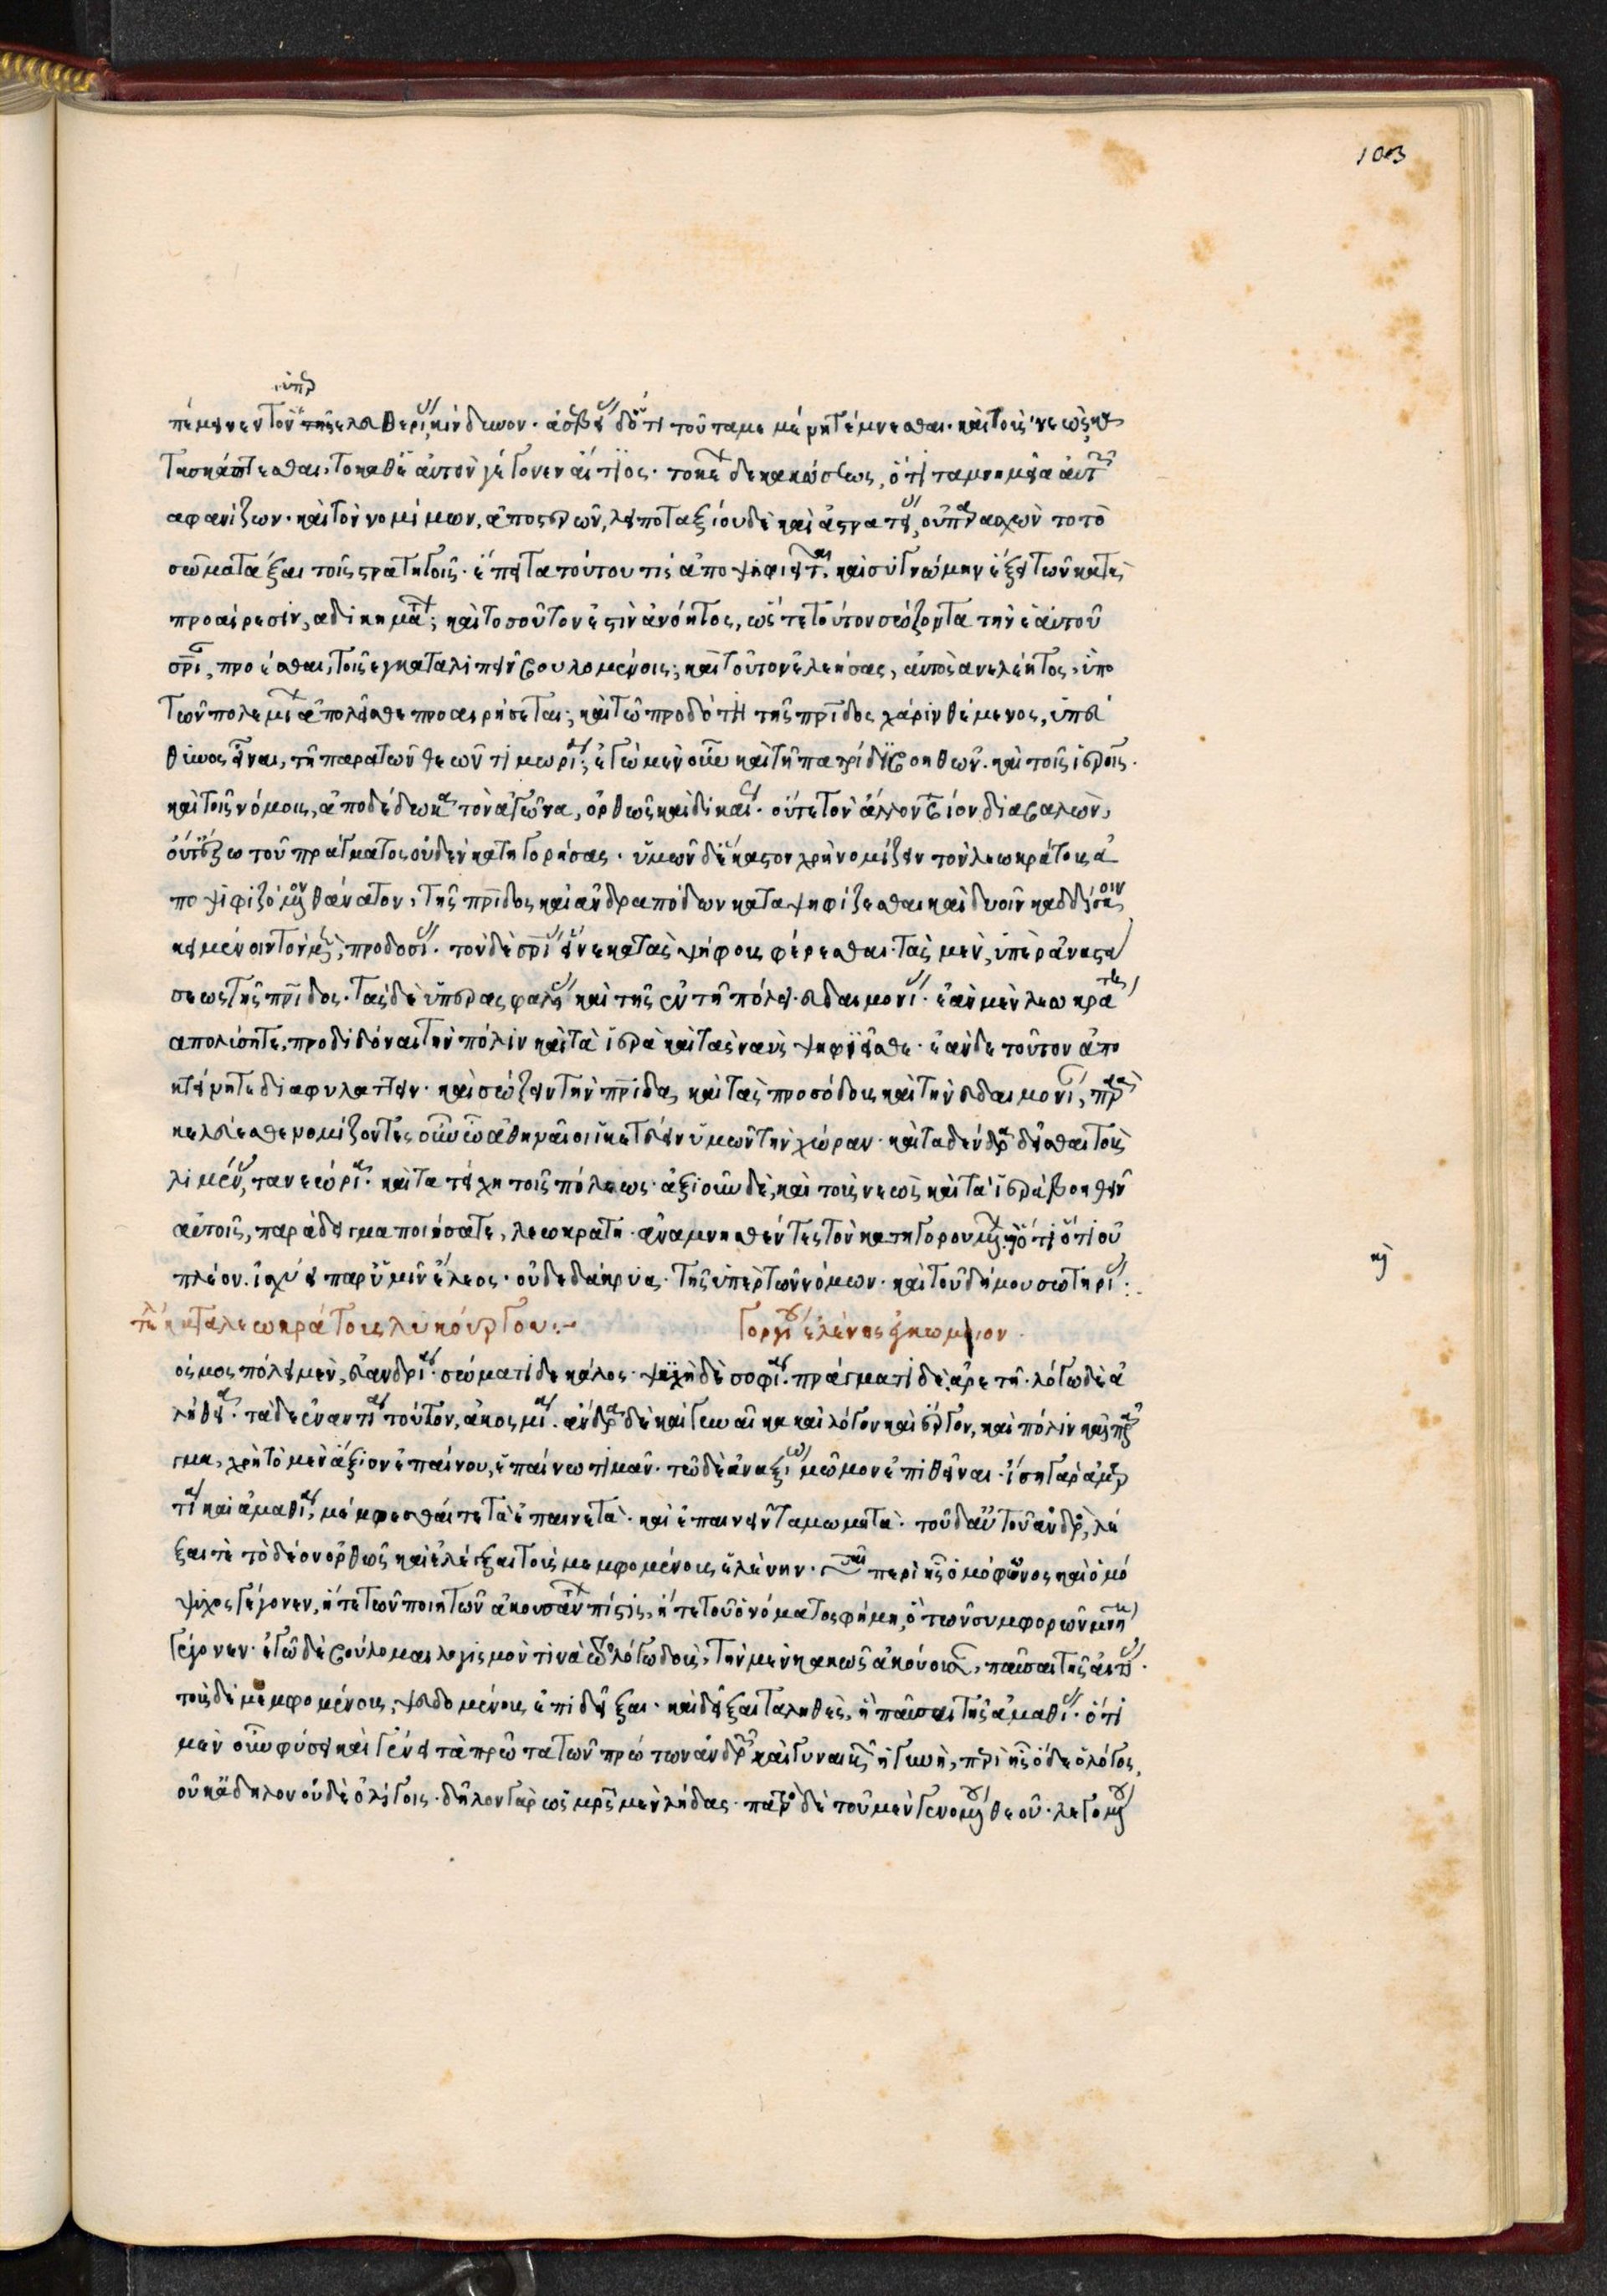 103
ὑπὲρ
πέμεινεν τὸν τῆς ἐλευθερίας κίνδυνον· ἀσεβείας δ᾽ ὅτι τοῦ τα τεμένη τέμνεσθαι· καὶ τοὺς νεὼς κα
τασκάπτεσθαι, τὸ καθ᾽ ἑαυτὸν γέγονεν αἴτιος· τοκέων δὲ κακώσεως, ὅτι τὰ μνημεῖα αὐτῶν
ἀφανίζων· καὶ τῶν νομίμων, ἀποστερῶν, λειποταξίου δὲ καὶ ἀστρατείας, οὐ παρασχὼν τὸ τὸ
σῶμα τάξαι τοῖς στρατηγοῖς· ἔπειτα τούτου τίς ἀποψηφιεῖται, καὶ συγγνώμην ἕξει τῶν κατὰ
προαίρεσιν, ἀδικημάτων; καὶ τοσοῦτον ἐστὶν ἀνόητος, ὥστε τοῦτον σώζοντα τὴν ἑαυτοῦ
σωτηρίαν, προέσθαι, τοῖς ἐγκαταλιπεῖν βουλομένοις; καὶ τοῦτον ἐλεήσας, αὐτὸς ἀνελέητος, ὑπὸ
τῶν πολεμίων ἀπολέσθαι προαιρήσεται; καὶ τῷ προδότῃ τῆς πρίδος χάριν θέμενος, ὑπεύ
θυνος εἶναι, τῇ παρὰ τῶν θεῶν τιμωρίᾳ; ἐγὼ μὲν οὖν καὶ τῇ πατρίδι βοηθῶν· καὶ τοῖς ἱεροῖς·
καὶ τοῖς νόμοις, ἀποδέδωκα τὸν ἀγῶνα, ὀρθῶς καὶ δικαίως· οὔτε τὸν ἄλλον βίον διαβαλὼν,
οὔτ᾽ ἔξω τοῦ πράγματος οὐδὲν κατηγορήσας· ὑμῶν δ᾽ ἕκαστον χρὴ νομίζειν τὸν λεωκράτους ἀ
ποψηφιζόμενον θάνατον, τῆς πρίδος καὶ ἀνδραποδων καταψηφίζεσθαι καὶ δυοῖν καδδίσκοιν
κειμένοιν τὸν μὲν, προδοσίας· τὸν δὲ σρίας εἵνεκα τὰς ψήφους φέρεσθαι· τὰς μὲν, ὑπὲρ ἀναστά
σεως τῆς πρίδος· τὰς δὲ ὑπὲρ ἀσφαλείας καὶ τῆς ἐν τῇ πόλει εὐδαιμονίας· ἐὰν μὲν λεωκράτην
ἀπολύσητε, προδιδόναι τὴν πόλιν καὶ τὰ ἱερὰ καὶ τὰς ναῦς ψηφιεῖσθε· ἐὰν δὲ τοῦτον ἀπο
κτείνητε διαφυλάττειν· καὶ σώζειν τὴν πρίδα, καὶ τὰς προσόδους καὶ τὴν εὐδαιμονίαν, παρα
κελεύεσθε νομίζοντες οὖν ὦ ἀθηναῖοι ἱκετεύειν ὑμῶν τὴν χώραν· καὶ τὰ δένδρα δεῖσθαι τοὺς
λιμένας, τὰ νεώρια· καὶ τὰ τείχη τοῖς πόλεως· ἀξιοῦν δὲ, καὶ τοὺς νεὼς καὶ τὰ ἱερὰ βοηθεῖν
αὐτοῖς, παράδειγμα ποιήσατε, λεωκράτη· ἀναμνησθέντες τῶν κατηγορουμένων ὅτι ὅτι οὐ
πλέον. ἰσχύει παρ᾽ ὑμῖν ἔλεος· οὐδὲ δάκρυα· τῆς ὑπὲρ τῶν νόμων· καὶ τοῦ δήμου σωτηρίας:.
κατὰ λεωκράτους λυκούργου:~ Γοργίου ἑλένης ἐγκώμιον·
όσμος πόλει μὲν, εὐανδρία· σώματι δὲ κάλος· ψυχῇ δὲ σοφία· πράγματι δὲ ἀρετή· λόγω δὲ ἀ
λήθεια· τὰ δὲ ἐναντία τούτων, ἀκοσμία· ἄνδρα δὲ καὶ γυναῖκα καὶ λόγον καὶ ἔργον, καὶ πόλιν καὶ πρᾶ
γμα, χρὴ τὸ μὲν ἄξιον ἐπαίνου, ἐπαίνω τιμᾶν· τῶ δὲ ἀναξίω μῶμον ἐπιθεῖναι· ἴση γὰρ ἁμαρ
τία καὶ ἀμαθία, μέμφεσθαί τε τὰ ἐπαινετὰ· καὶ ἐπαινεῖν τὰ μωμητά· τοῦ δ᾽ αὐτοῦ ἀνδρὸς, λέ
ξαι τε τὸ δέον ὀρθῶς καὶ ἐλέγξαι τοὺς μεμφομένους ἑλένην· περὶ ἧς ὁμόφωνος καὶ ὁμό
ψυχος γέγονεν, ἥ τε τῶν ποιητῶν ἀκουσάντων πίστις, ἥ τε τοῦ ὀνόματος φήμη, ὃ τῶν συμφορῶν μνήμη
γέγονεν· ἐγὼ δὲ βούλομαι λογισμόν τινα τῶ λόγω δοὺς, τὴν μὲν κακῶς ἀκούουσαν, παῦσαι τῆς αἰτίας·
τοὺς δὲ μεμφομένους, ψευδομένους ἐπιδεῖξαι· καὶ δεῖξαι τἀληθὲς, ἢ παῦσαι τῆς ἀμαθίας· ὅτι
μὲν οὖν φύσει καὶ γένει τὰ πρῶτα τῶν πρώτων ἀνδρῶν καὶ γυναικῶν ἡ γυνὴ, περὶ ἧς ὅδε ὁ λόγος,
οὐκ ἄδηλον οὐδὲ ὀλίγοις· δῆλον γὰρ ὡς μρς μὲν λήδας· πατρὸς δὲ τοῦ μὲν γενομένου θεοῦ· λεγομένου